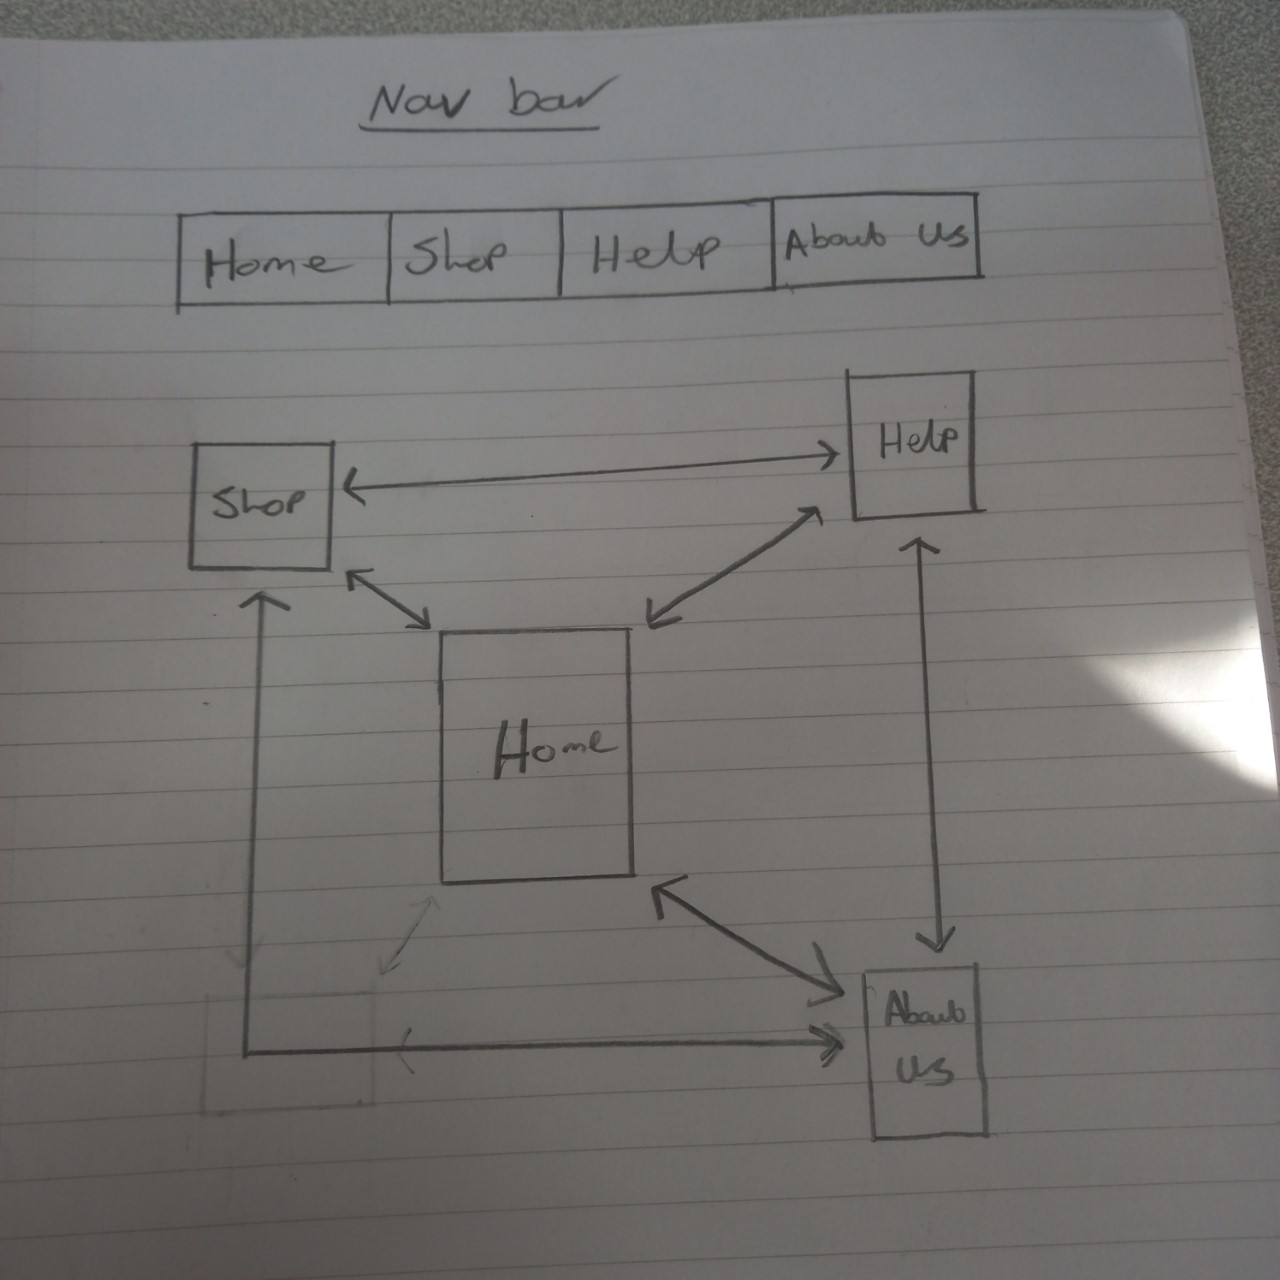 Nav bar
Home Shop Help About Us
Help
Shop
Home
About
Us